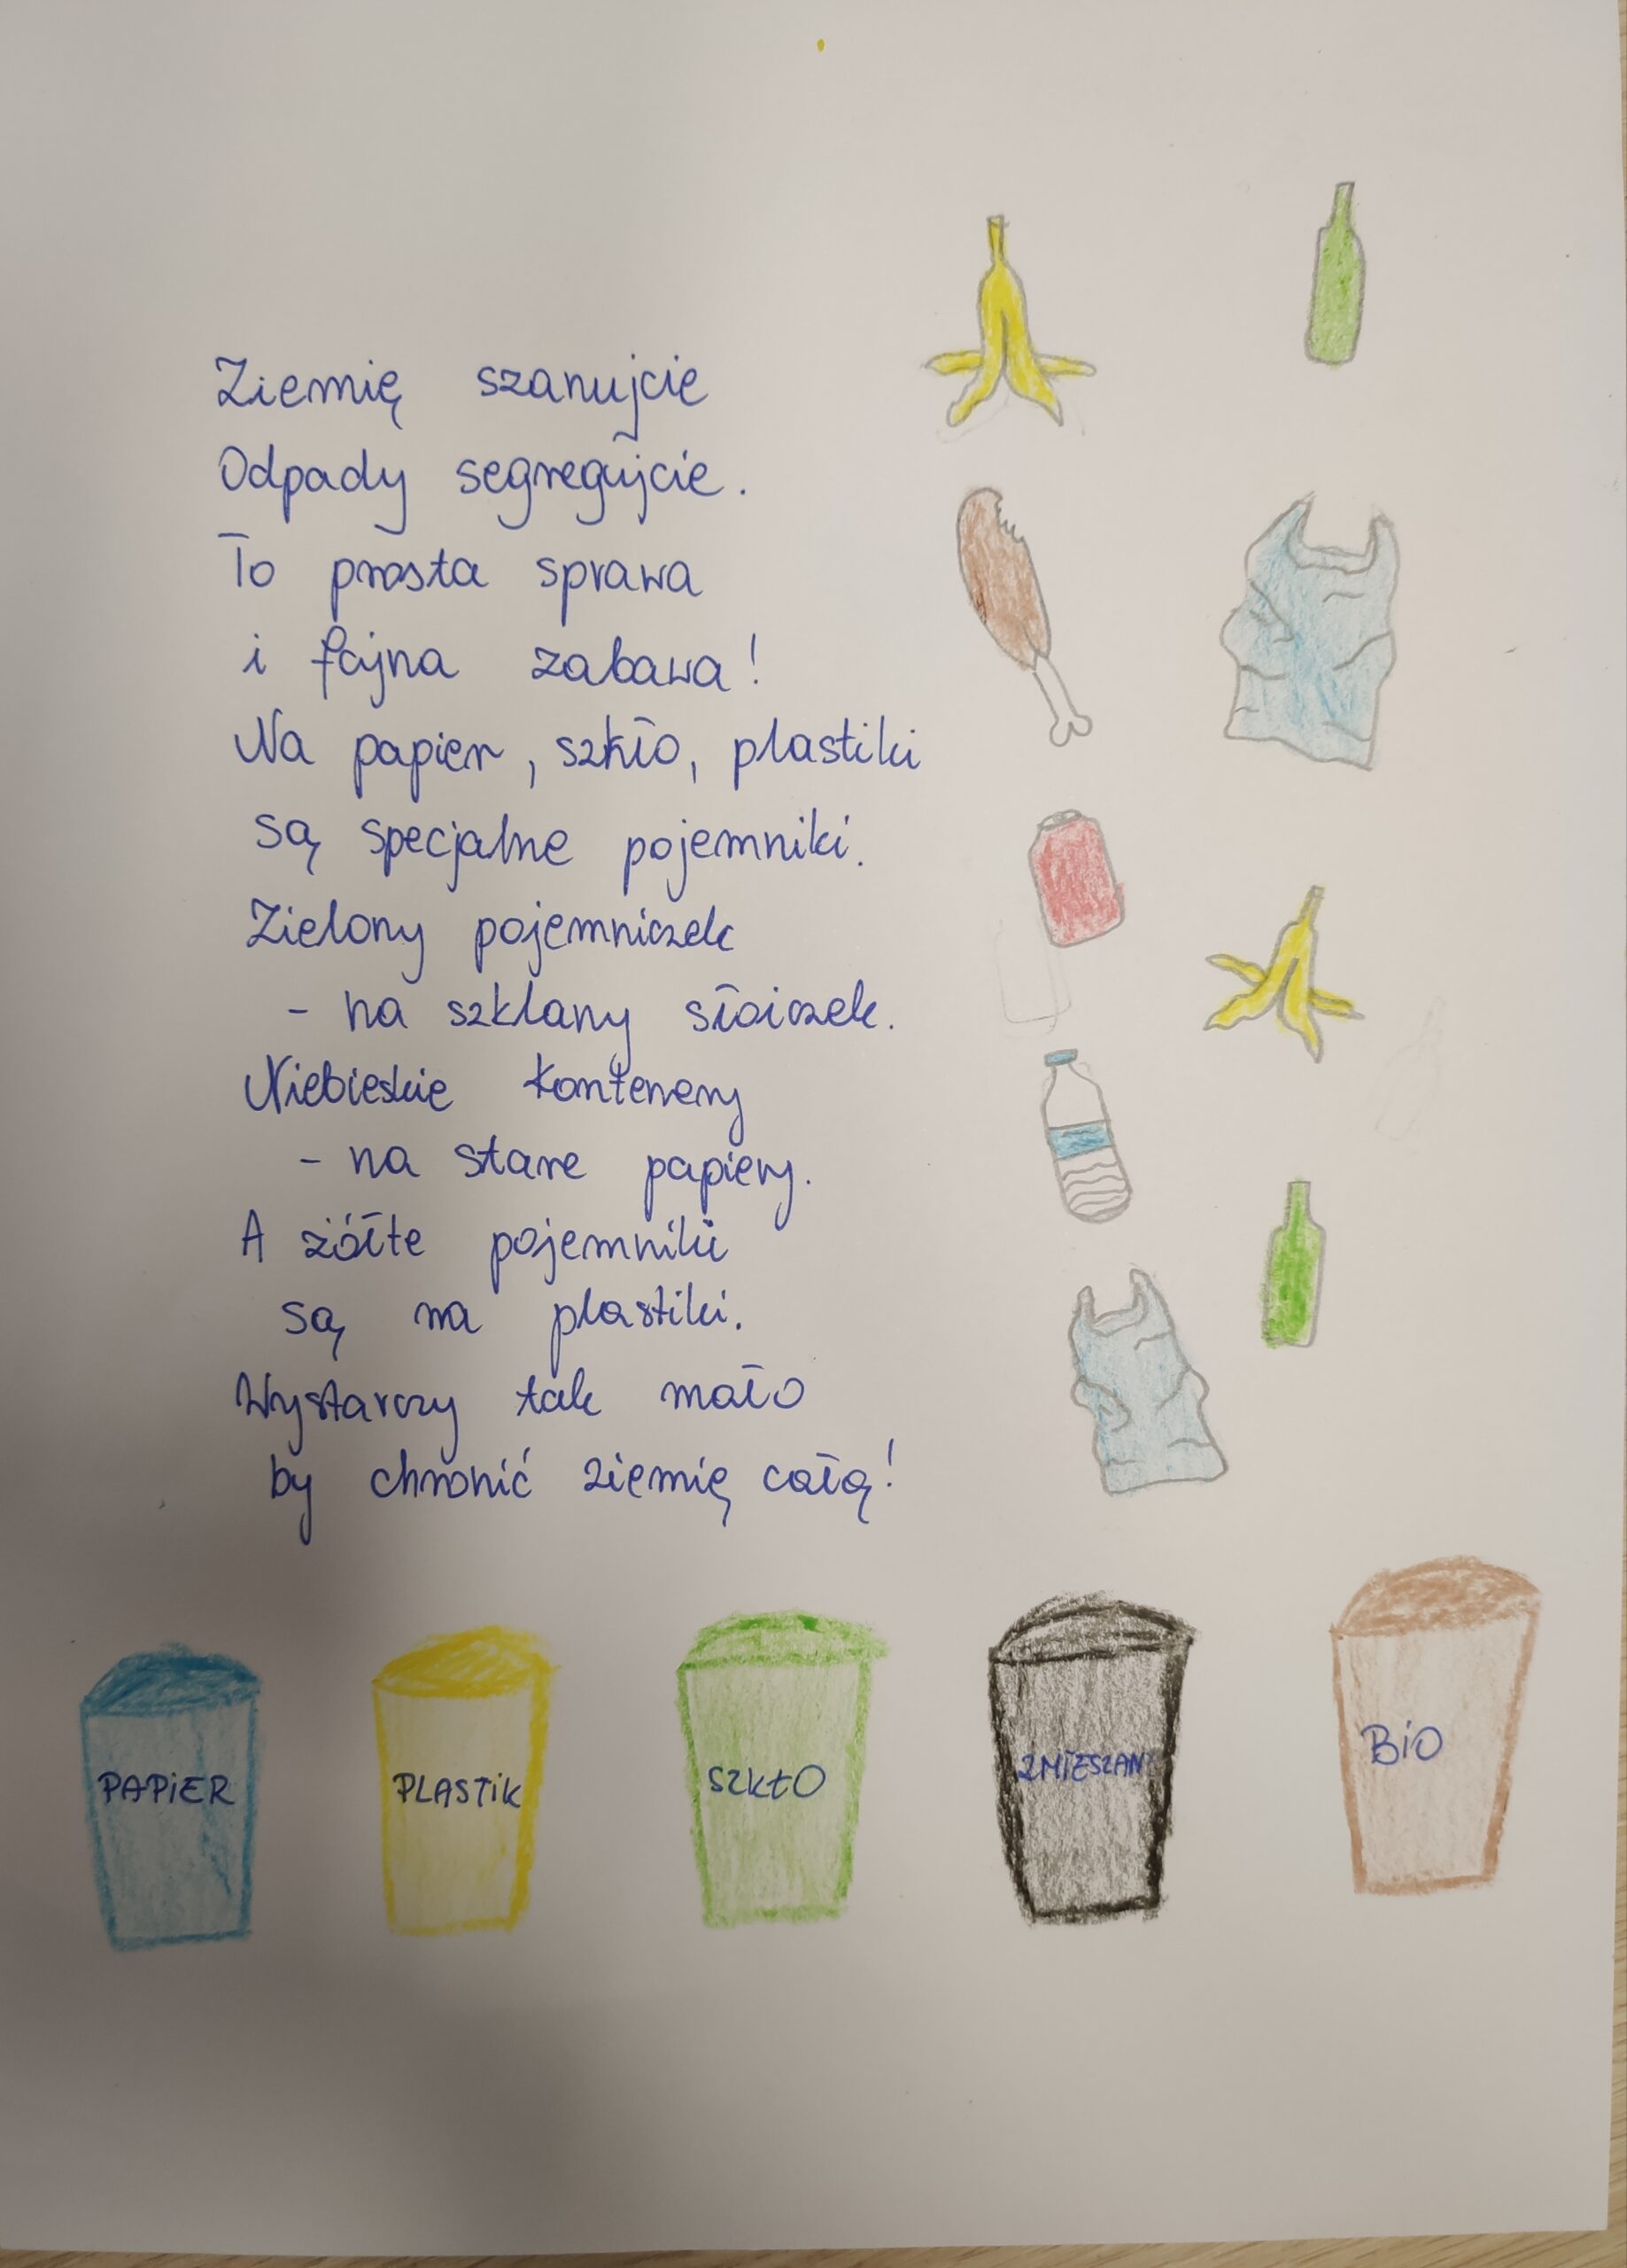 Ziemię szanujcie
Odpady segregujcie.
To prosta sprawa
i fajna zabawa!
Na papier, szkło, plastiki
są specjalne pojemniki.
Zielony pojemniczek
- na szklany słoiczek.
Niebieskie kontenery
- na stare papiery.
A żółte pojemniki
są na plastiki.
Wystarczy tak mało
by chronić ziemię całą!
PAPIER PLASTIK SZKŁO ZMIESZANE BIO